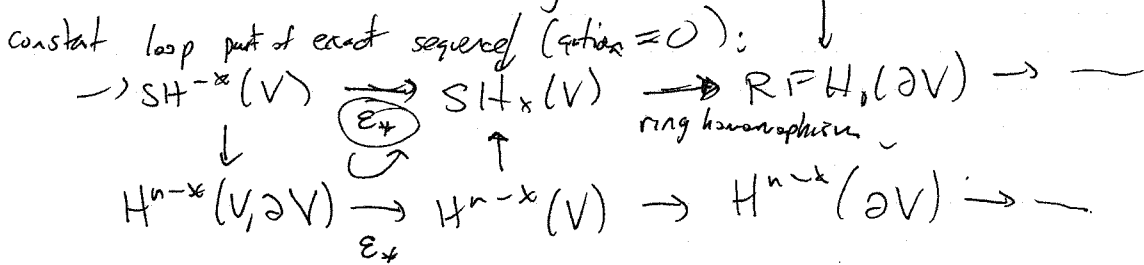 constant loop part of exact sequence (action = 0):
→ SH^{-*}(V) → SH_*(V) → RFH_*(∂V) →
ε_* ring homomorphism
H^{n-*}(V,∂V) → H^{n-*}(V) → H^{n-*}(∂V) →
ε_*